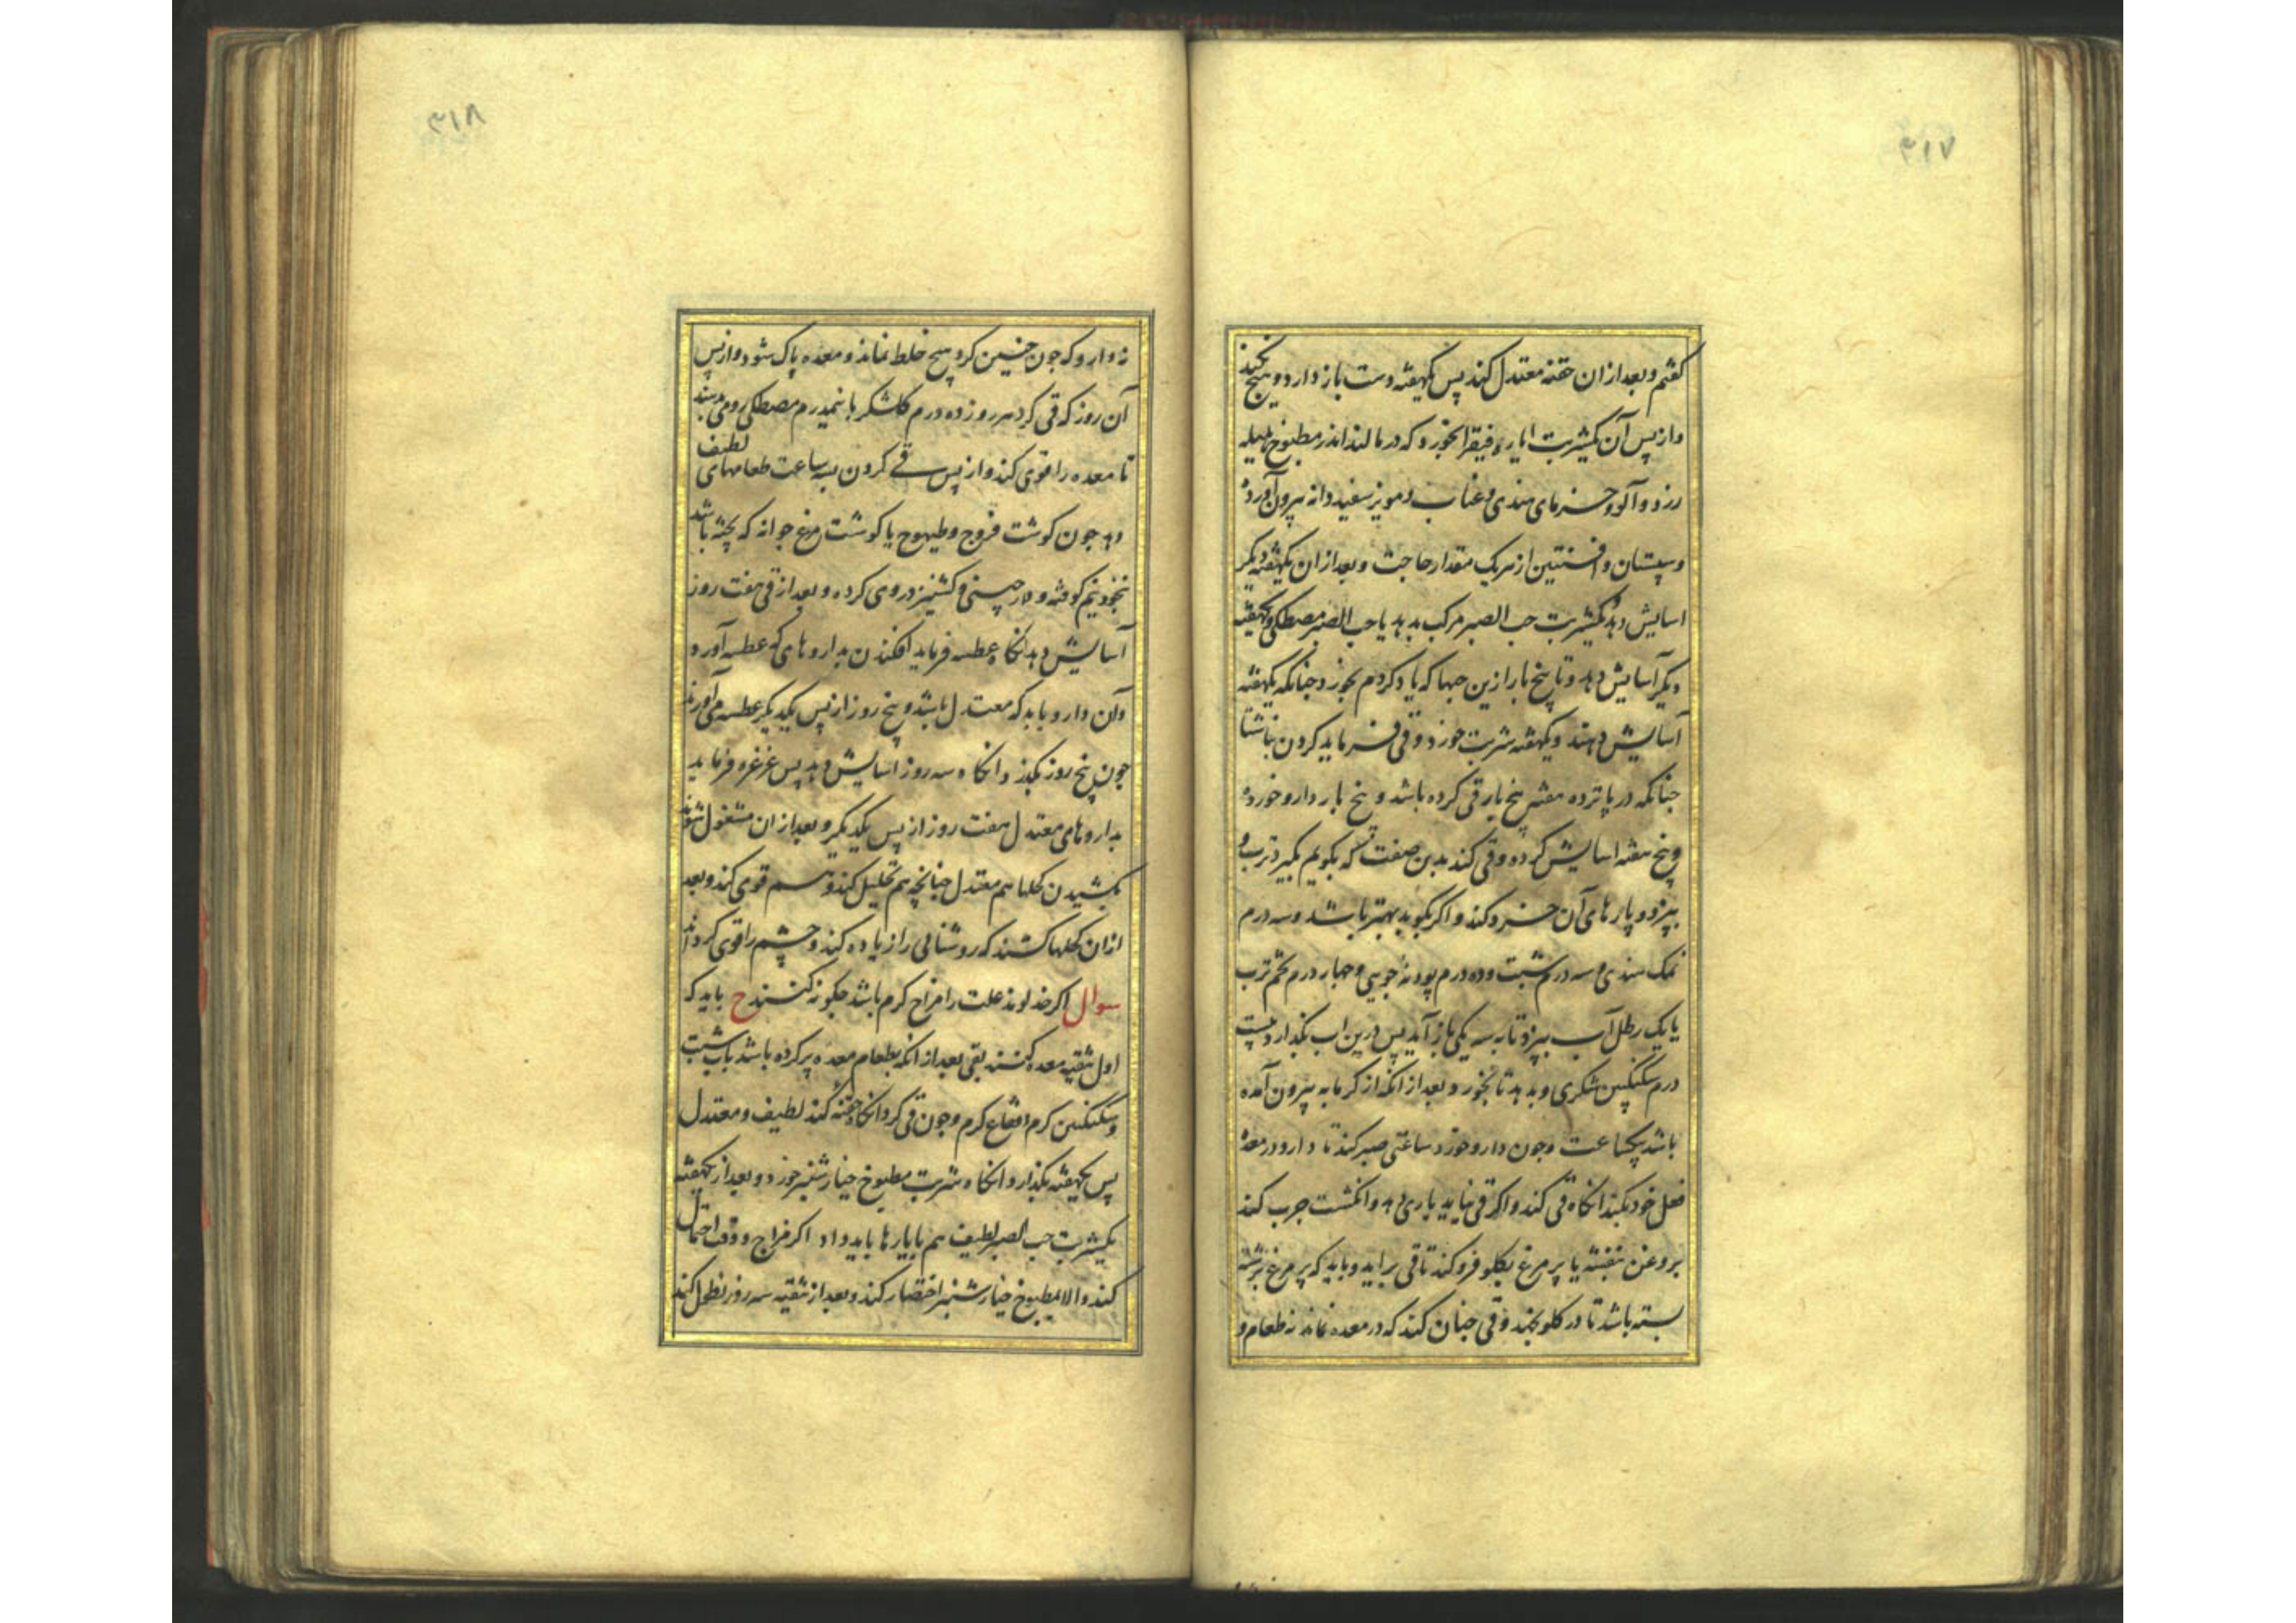 ۳۱۷
گفتم و بعد از ان حقنه معتدل کند پس یکهفته دست باز دارد و هیچ نکند
و از پس آن یکشربت ایاره فیقرا بخورد که در مالند اندر مطبوخ هلیله
زرد و آلو و خرمای هندی و عناب و مویز سفید دانه بیرون آورده
و سپستان و افسنتین از هریک مقدار حاجت و بعد از ان یکهفته دیگر
اسایش دهد و یکشربت حب الصبر مرکب بدهد یا حب الصبر مصطکی و یکهفته
دیگر آسایش دهد و تا پنج بار ازین حبها که یاد کردم بخورد چنانکه یکهفته
آسایش دهند و یکهفته شربت خورد و قی فرماید کردن بناشتا
چنانکه در پانزده هفته پنج بار قی کرده باشد و پنج بار دارو خورده
و پنج هفته اسایش کرده و قی کند بدین صفت که بگویم بگیرد ترب و
ببرد و پارهای آن خرد کند و اگر بکوبد بهتر باشد و سه درم
نمک هندی و سه درم شبت و ده درم پودنهٔ جویی و چهار درم تخم ترب
با یک رطل آب ببزد تا به سه یکی باز آید پس درین اب بگذارد بیست
درم سکنگبین شکری و بدهد تا بخورد و بعد از انکه از گرمابه بیرون آمده
باشد بیکساعت و چون دارو خورد ساعتی صبر کند تا دارو در معده
فعل خود بکند انگاه قی کند و اگر قی نیاید یاری دهد و انگشت چرب کند
بروغن بنفشه یا پر مرغ بگلو فرو کند تا قی براید و باید که پر مرغ برشته
بسته باشد تا در گلو نجهد و قی چنان کند که در معده نماند نه طعام و
۳۱۸
نه دارو که چون چنین کرد هیچ خلط نماند و معده پاک شود و از پس
آن روز که قی کرد هر روز ده درم گلشکر با نیمدرم مصطکی رومی بدهند
تا معده را قوی کند و از پس قی کردن بسه ساعت طعامهای لطیف
دهد چون گوشت فروج و طیهوج یا گوشت مرغ جوانه که پخته باشد
بنخود نیم کوفته و دارچینی و کشنیز در وی کرده و بعد از قی هفت روز
آسایش دهد انگاه عطسه فرماید افکندن بداروهای که عطسه آورد
و آن دارو باید که معتدل باشد و پنج روز از پس یکدیگر عطسه می آورند
چون پنج روز بگذرد انگاه سه روز اسایش دهد پس غرغره فرماید
بداروهای معتدل هفت روز از پس یکدیگر و بعد از ان مشغول شود
بکشیدن کحلها هم معتدل چنانچه هم تحلیل کند و هم قوی کند و بعد
ازان کحلها کشند که روشنائی را زیاده کند و چشم را قوی گرداند
سوال اگر خداوند علت را مزاج گرم باشد چگونه کنند ج باید که
اول تنقیه معده کنند بقی بعد از انکه بطعام معده پر کرده باشد باب شبت
و سکنگبین گرم و فقاع گرم و چون قی کرد انگاه حقنه کند لطیف و معتدل
پس یکهفته بگذارد انگاه شربت مطبوخ خیارشنبر خورد و بعد از یکهفته
یکشربت حب الصبر لطیف هم با یارها باید داد اگر مزاج و وقت احتمال
کند و الا بمطبوخ خیارشنبر اختصار کند و بعد از تنقیه سه روز نطول کند